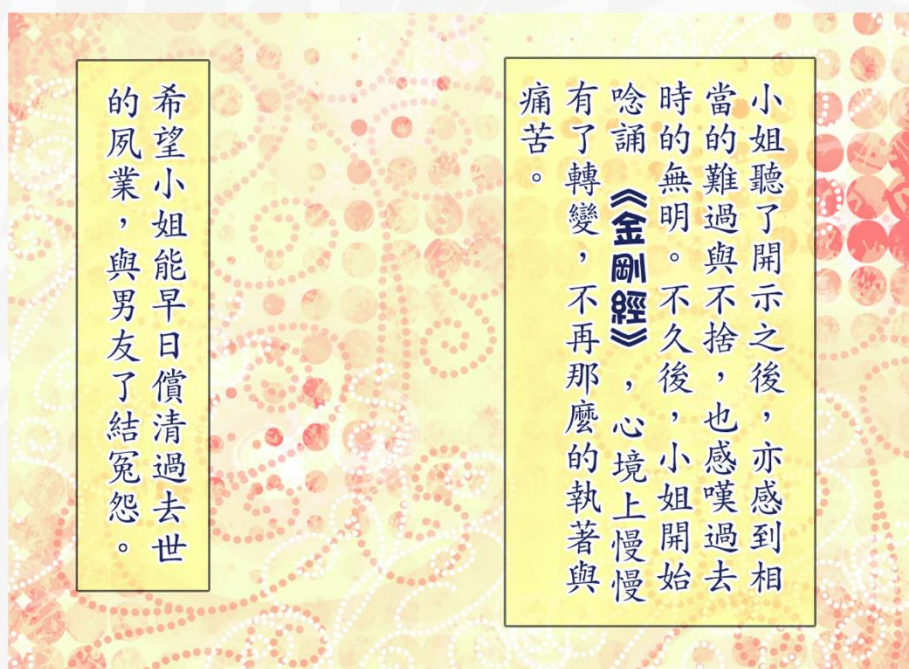 小姐聽了開示之後，亦感到相
當的難過與不捨，也感嘆過去
時的無明。不久後，小姐開始
唸誦《金剛經》，心境上慢慢
有了轉變，不再那麼的執著與
痛苦。
希望小姐能早日償清過去世
的夙業，與男友了結冤怨。